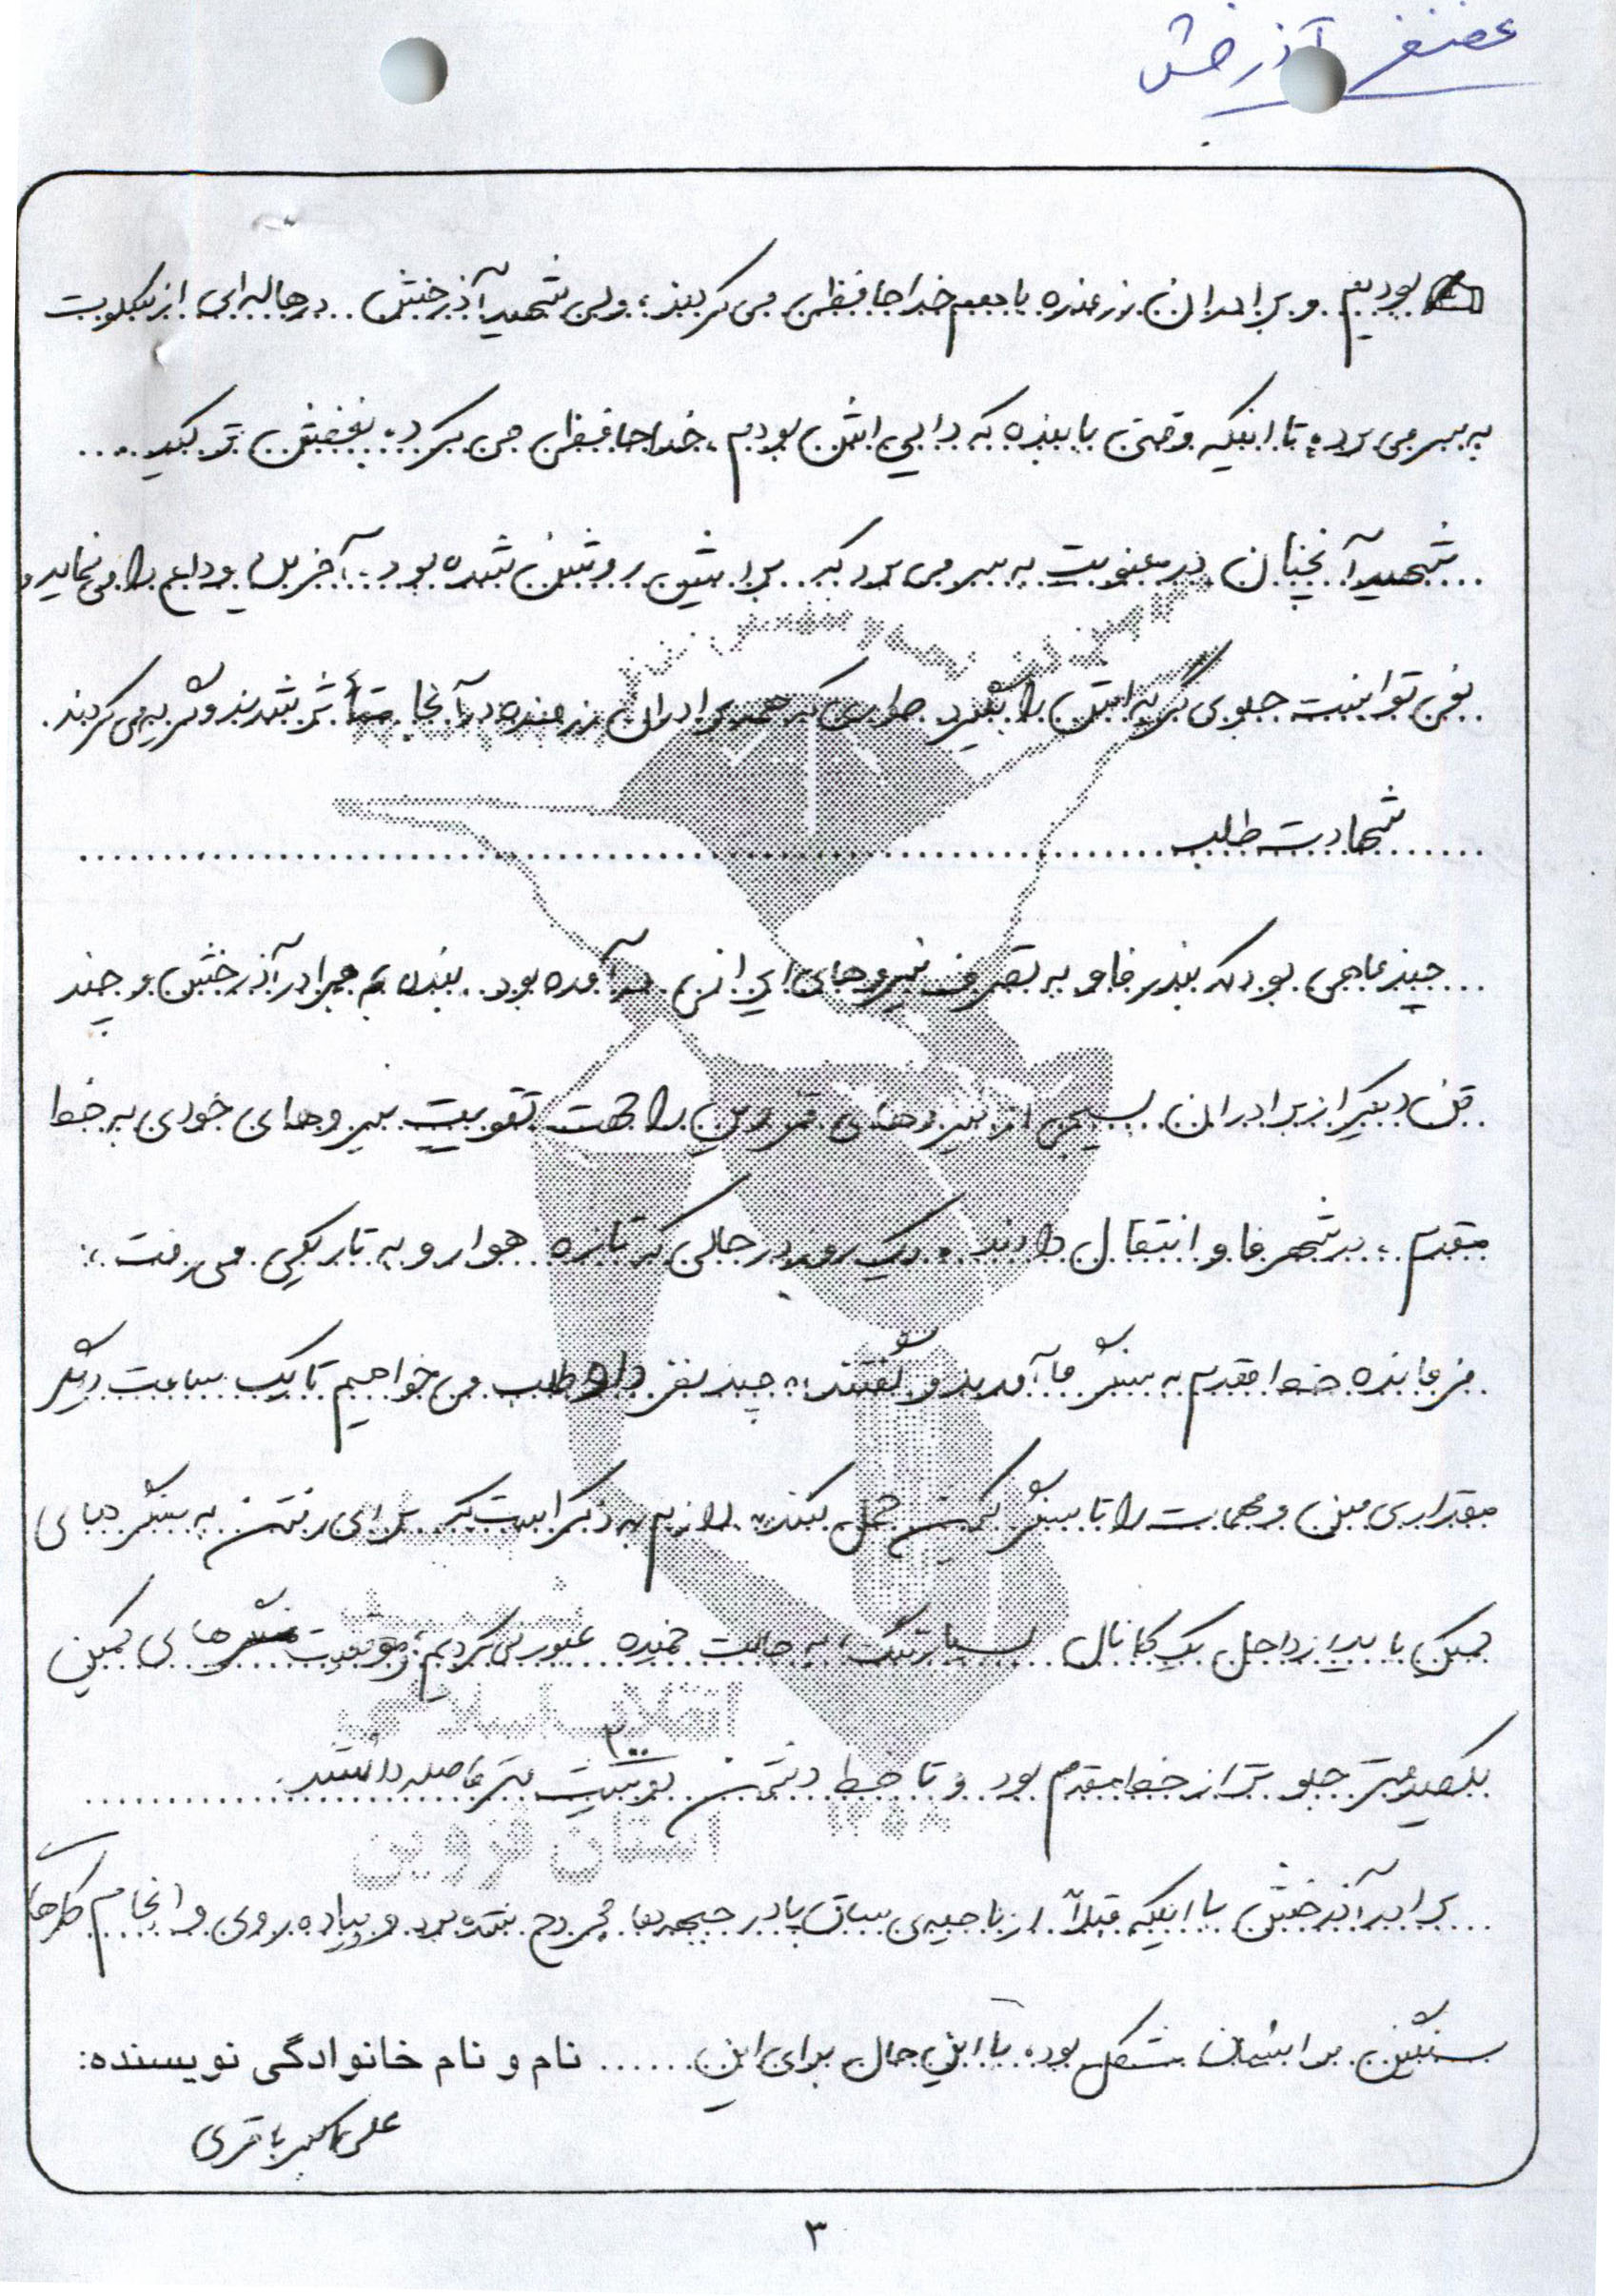 غضنفر آذرخش
بودیم و برادران رزمنده با هم خداحافظی می کردند، ولی شهید آذرخش در هاله ای از ملکوت
به سر می برد، تا اینکه وقتی با بنده که دایی اش بودم، خداحافظی می کرد، بغضش ترکید.
شهید آنچنان در معنویت به سر می برد که برایش روشن شده بود، آخرین وداع را می نماید و
نمی توانست جلوی گریه اش را بگیرد طوری که همه برادران رزمنده در آنجا متأثر شدند و گریه می کردند.
شهادت طلب
چند ماهی بود که بندر فاو به تصرف نیروهای ایرانی در آمده بود. بنده به همراه برادر آذرخش و چند
تن دیگر از برادران بسیجی از نیروهای قزوین را جهت تقویت نیروهای خودی به خط
مقدم، در شهر فاو انتقال دادند. یک روز در حالی که تازه هوا رو به تاریکی می رفت،
فرمانده خط مقدم به سنگر ما آمدند و گفتند: چند نفر داوطلب می خواهیم تا یک ساعت دیگر
مقداری مین و مهمات را تا سنگر کمین حمل کنند. لازم به ذکر است که برای رفتن به سنگرهای
کمین باید از داخل یک کانال بسیار تنگ، به حالت خمیده عبور می کردیم، موقعیت سنگرهای کمین
یکصد متر جلوتر از خط مقدم بود و تا خط دشمن دویست ۲۰۰ متر فاصله داشتند.
برادر آذرخش با اینکه قبلاً از ناحیه ی ساق پا در جبهه ها مجروح شده بود و پیاده روی و انجام کارهای
سنگین برایشان مشکل بود، با این حال برای این ...... نام و نام خانوادگی نویسنده:
علی اکبر باقری
۳
انقلاب اسلامی
استان قزوین
۱۳۵۸